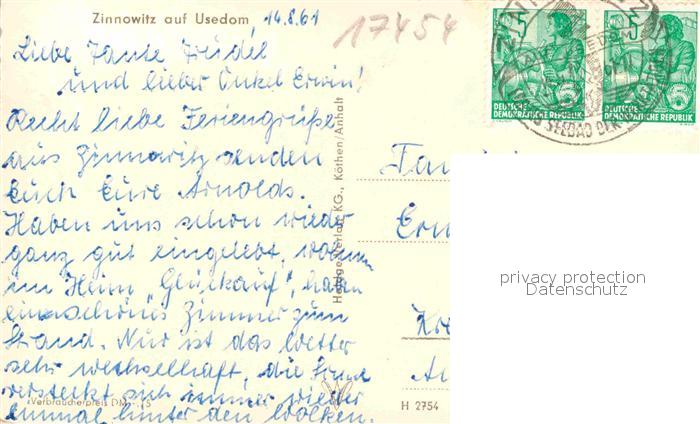 Zinnowitz auf Usedom, 14.8.61
17454
Liebe Tante Friedel
und lieber Onkel Erwin!
Recht liebe Feriengrüße
aus Zinnowitz senden
Euch Eure Arnolds.
Haben uns schon wieder
ganz gut eingelebt, wohnen
im Heim "Glückauf", haben
ein schönes Zimmer zum
Strand. Nur ist das Wetter
sehr wechselhaft, die Sonne
versteckt sich immer wieder
einmal hinter den Wolken.
Verbraucherpreis DM
KG., Köthen/Anhalt
H 2754
5
DEUTSCHE
DEMOKRATISCHE REPUBLIK
5
DEUTSCHE
DEMOKRATISCHE REPUBLIK
SEEBAD DER
privacy protection
Datenschutz